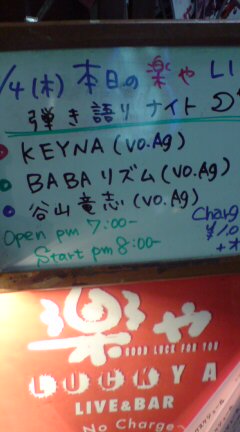 /4(木) 本日の楽や LI
弾き語りナイト
KEYNA (vo.Ag)
BABAリズム (vo.Ag)
谷山竜志 (vo.Ag)
Charg
¥1,0
Open pm 7:00~
+オ
Start pm 8:00~
楽や
GOOD LUCK FOR YOU
LUCKYA
LIVE&BAR
No Charge